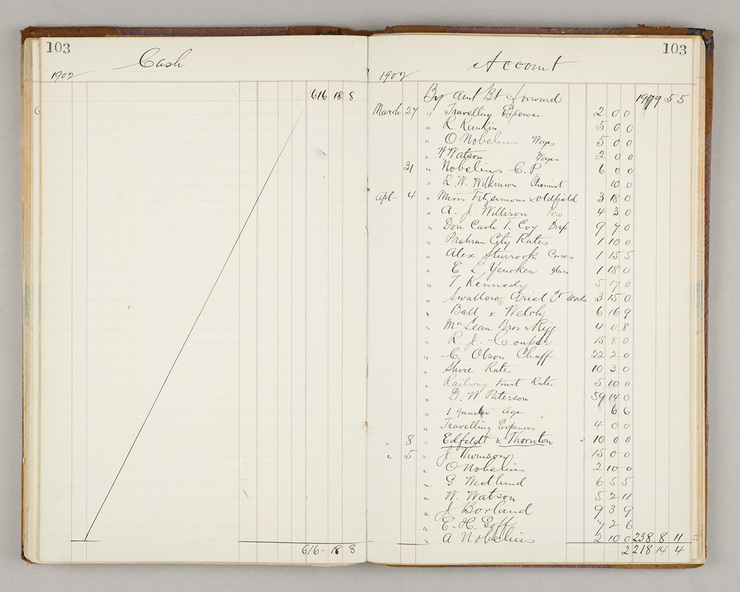 103
Cash
1902
616 18 8
616 - 18 8
103
Account
1902
By Amt Bt Forward 1979 5 5
March 27 " Travelling Expenses 2 0 0
" R Rankin 5 0 0
" O Nobelius Wages 5 0 0
" W Watson Wages 2 0 0
31 " Nobelius C. P. 6 0 0
" R. W. Wilkinson Chemist 10 0
Apl 4 " Messrs Fitzsimons & Oldfield 3 18 0
" A. J. Willison 4 3 0
" Don Cash T. Coy 9 9 0
" Prahran City Rates 1 10 0
" Alex Sturrock Cases 1 15 5
" E L Yencken glass 1 18 0
" T. Kennedy 5 17 0
" Swallow Ariel 3 15 0
" Ball & Welch 6 16 9
" McLean Bros & Rigg 4 0 8
" R. J. Couper 15 8 0
" C. Olson Chaff 22 2 0
" Shire Rates 10 3 0
" Railway Trust Rates 5 10 0
" D. W Paterson 59 14 0
" 1 quarter Age 6 6
" Travelling Expenses 4 0 0
" 8 " Edfeldt & Thornton 10 0 0
" 5 " J Thomson 15 0 0
" O Nobelius 2 10 0
" G Westlund 6 5 5
" W. Watson 5 2 11
" J Borland 9 3 9
" E. H. Goff 7 2 6
" A Nobelius 2 10 0 238 8 11
2218 14 4